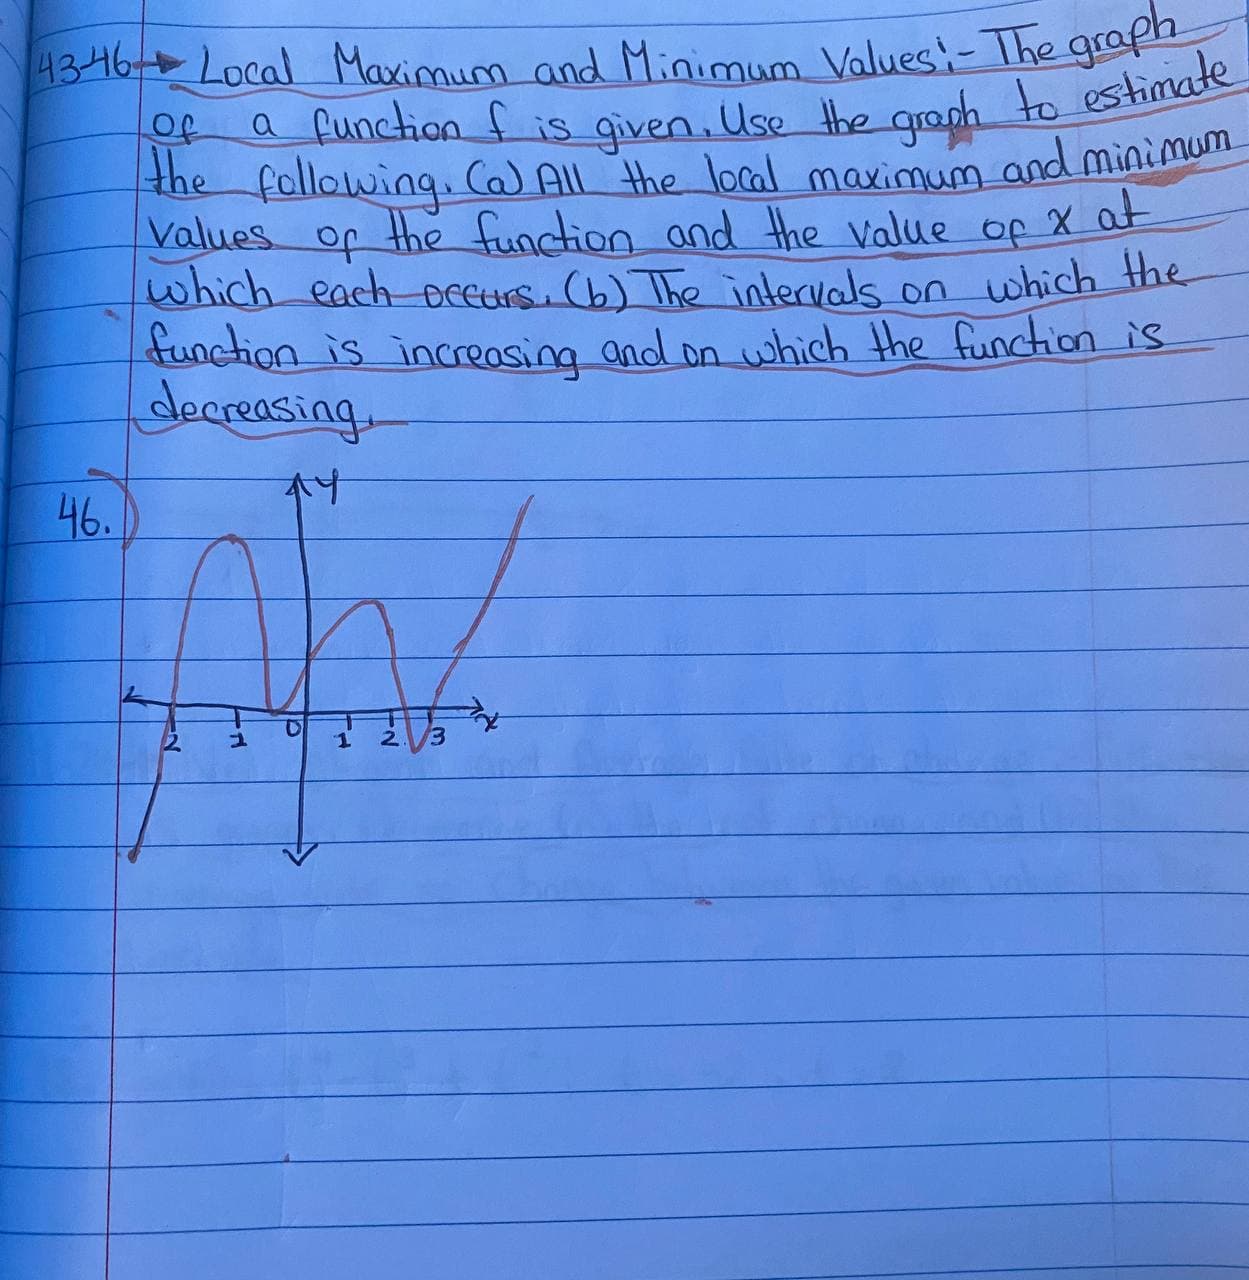 43-46→ Local Maximum and Minimum Values:- The graph
of a function f is given. Use the graph to estimate
the following. (a) All the local maximum and minimum
values of the function and the value of x at
which each occurs. (b) The intervals on which the
function is increasing and on which the function is
decreasing.
46.)
y
2 1 0 1 2 3 x